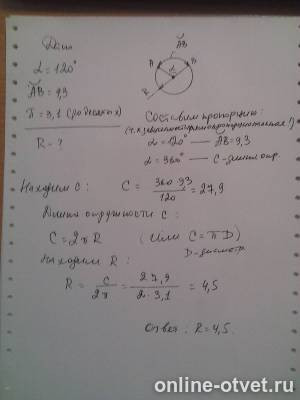 Дано
α = 120°
ᴗAB = 9,3
π = 3,1 (до десятых)
R - ?
ᴗAB
A
B
α
R
Составим пропорцию:
(т.к. зависимость прямо пропорциональная!)
α = 120° — ᴗAB = 9,3
α = 360° — C - длина окр.
Находим C: C = 360·9,3 / 120 = 27,9
Длина окружности C:
C = 2πR (или C = πD)
D - диаметр
Находим R:
R = C / 2π = 27,9 / 2·3,1 = 4,5
Ответ: R = 4,5.
online-otvet.ru